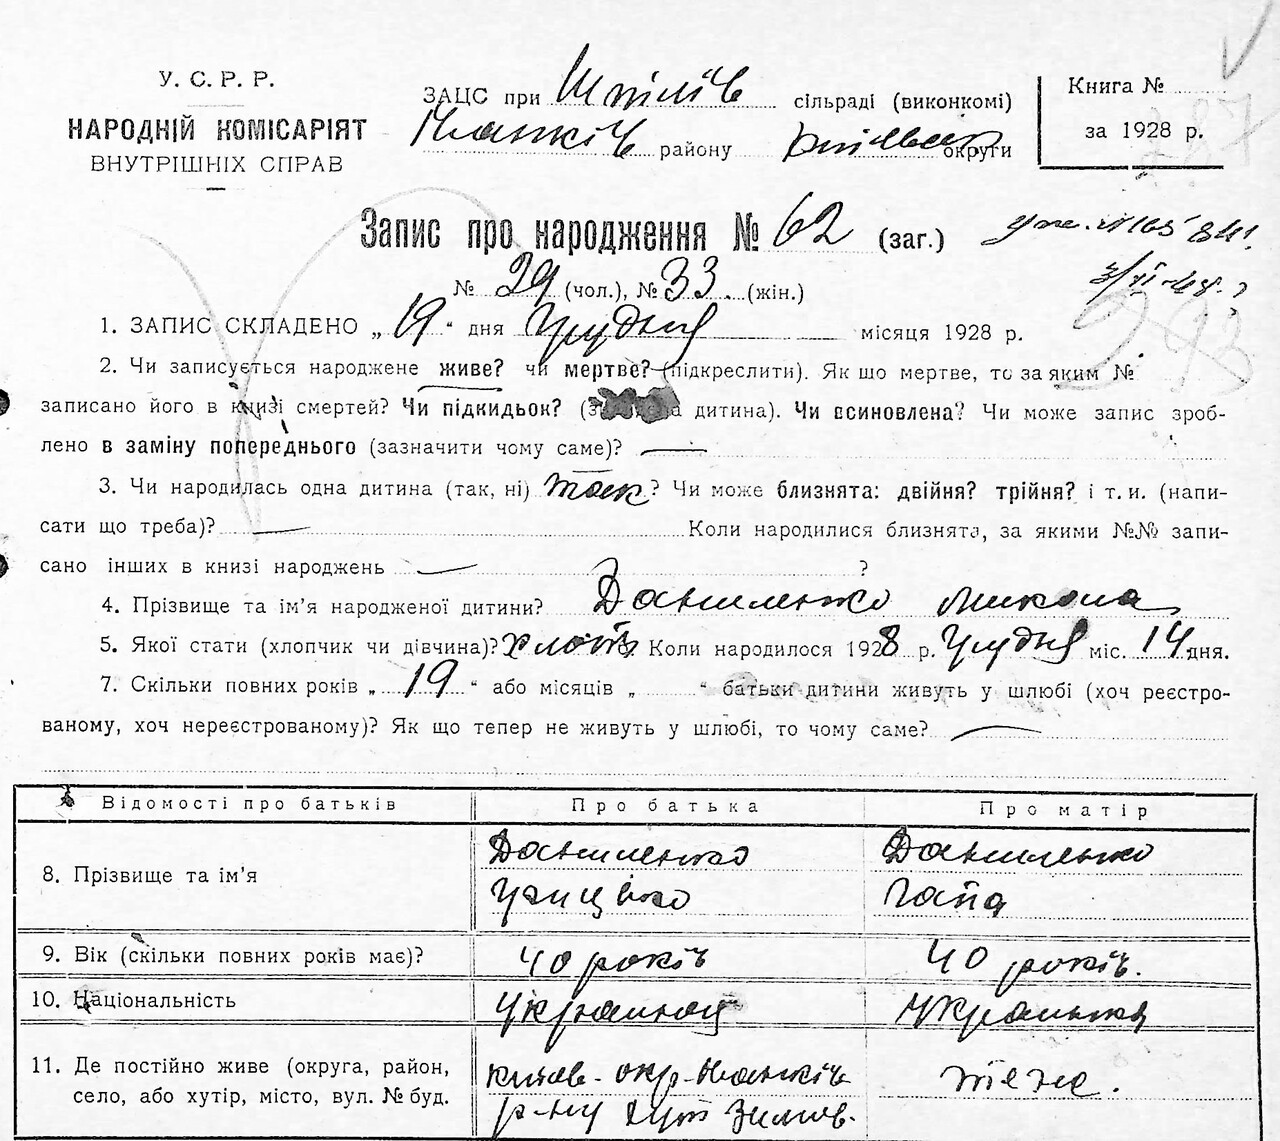 У. С. Р. Р.
НАРОДНІЙ КОМІСАРІЯТ
ВНУТРІШНІХ СПРАВ
ЗАЦС при Шпілів сільраді (виконкомі)
району округи
Книга №
за 1928 р.
Запис про народження № 62 (заг.)
№ 29 (чол.), № 33. (жін.)
1. ЗАПИС СКЛАДЕНО „ 19 “ дня Грудня місяця 1928 р.
2. Чи записується народжене живе? чи мертве? (підкреслити). Як шо мертве, то за яким №
записано його в книзі смертей? Чи підкидьок? ( дитина). Чи всиновлена? Чи може запис зроб-
лено в заміну попереднього (зазначити чому саме)?
3. Чи народилась одна дитина (так, ні) так? Чи може близнята: двійня? трійня? і т. и. (напи-
сати що треба)? Коли народилися близнята, за якими №№ запи-
сано інших в книзі народжень ?
4. Прізвище та ім’я народженої дитини? Даниленко Микола
5. Якої стати (хлопчик чи дівчина)? Коли народилося 1928 р. Грудня міс. 14 дня.
7. Скільки повних років „ 19 “ або місяців „ “ батьки дитини живуть у шлюбі (хоч реєстро-
ваному, хоч нереєстрованому)? Як що тепер не живуть у шлюбі, то чому саме?
Відомості про батьків Про батька Про матір
8. Прізвище та ім’я
Даниленко Даниленко
Грицько Гапа
9. Вік (скільки повних років має)? 40 років 40 років.
10. Національність
11. Де постійно живе (округа, район,
село, або хутір, місто, вул. № буд.
Київ. окр.
р-ну хут